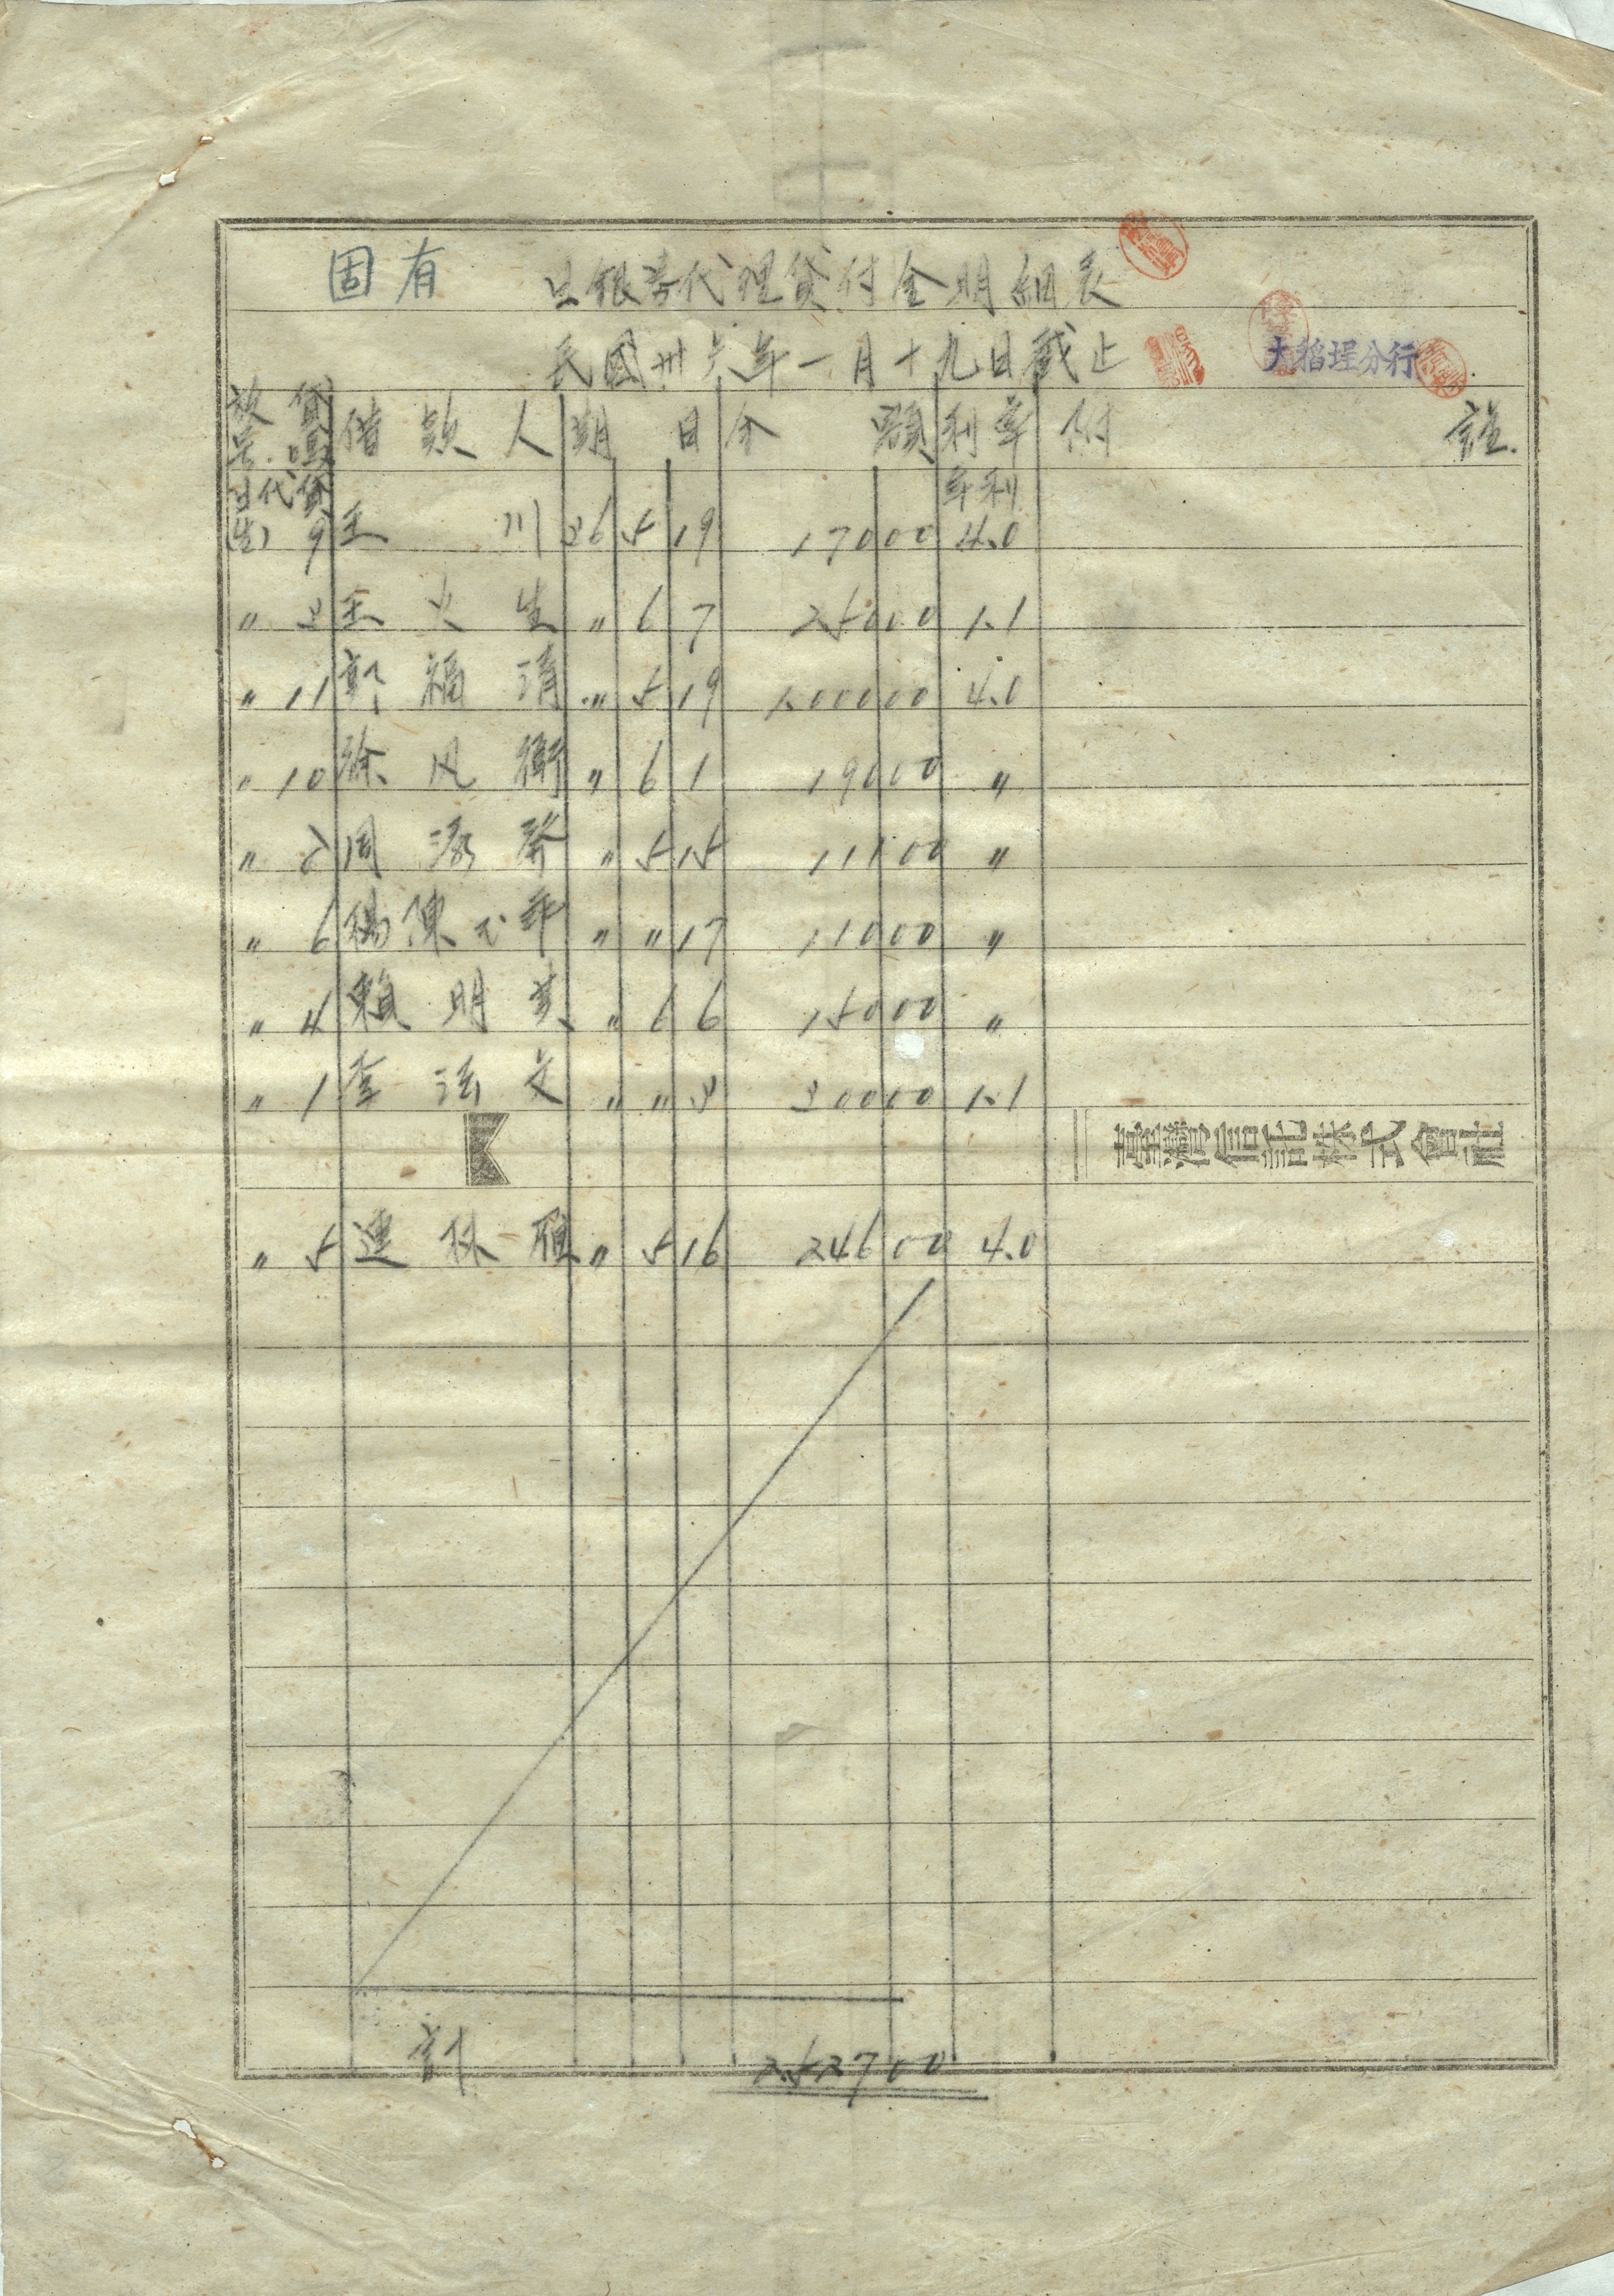 固有 日銀券代理貸付金明細表
民國卅六年一月十九日截止 大稻埕分行
放貸号碼 借款人 期日 金額 利率 附註.
日代貸(生) 9 王川 36 5 19 17000 年利 4.0
〃 3 王火生 〃 6 7 25000 1.1
〃 11 郭福清 〃 5 19 100000 4.0
〃 10 徐风衡 〃 6 1 19000 〃
〃 周 〃 5 15 11100 〃
〃 6 楊陳 〃 〃 17 11000 〃
〃 4 賴明 〃 6 6 15000 〃
〃 1 李法文 〃 〃 3 30000 1.1
臺灣信託株式會社
〃 5 連林雁 〃 5 16 24600 4.0
計 252700